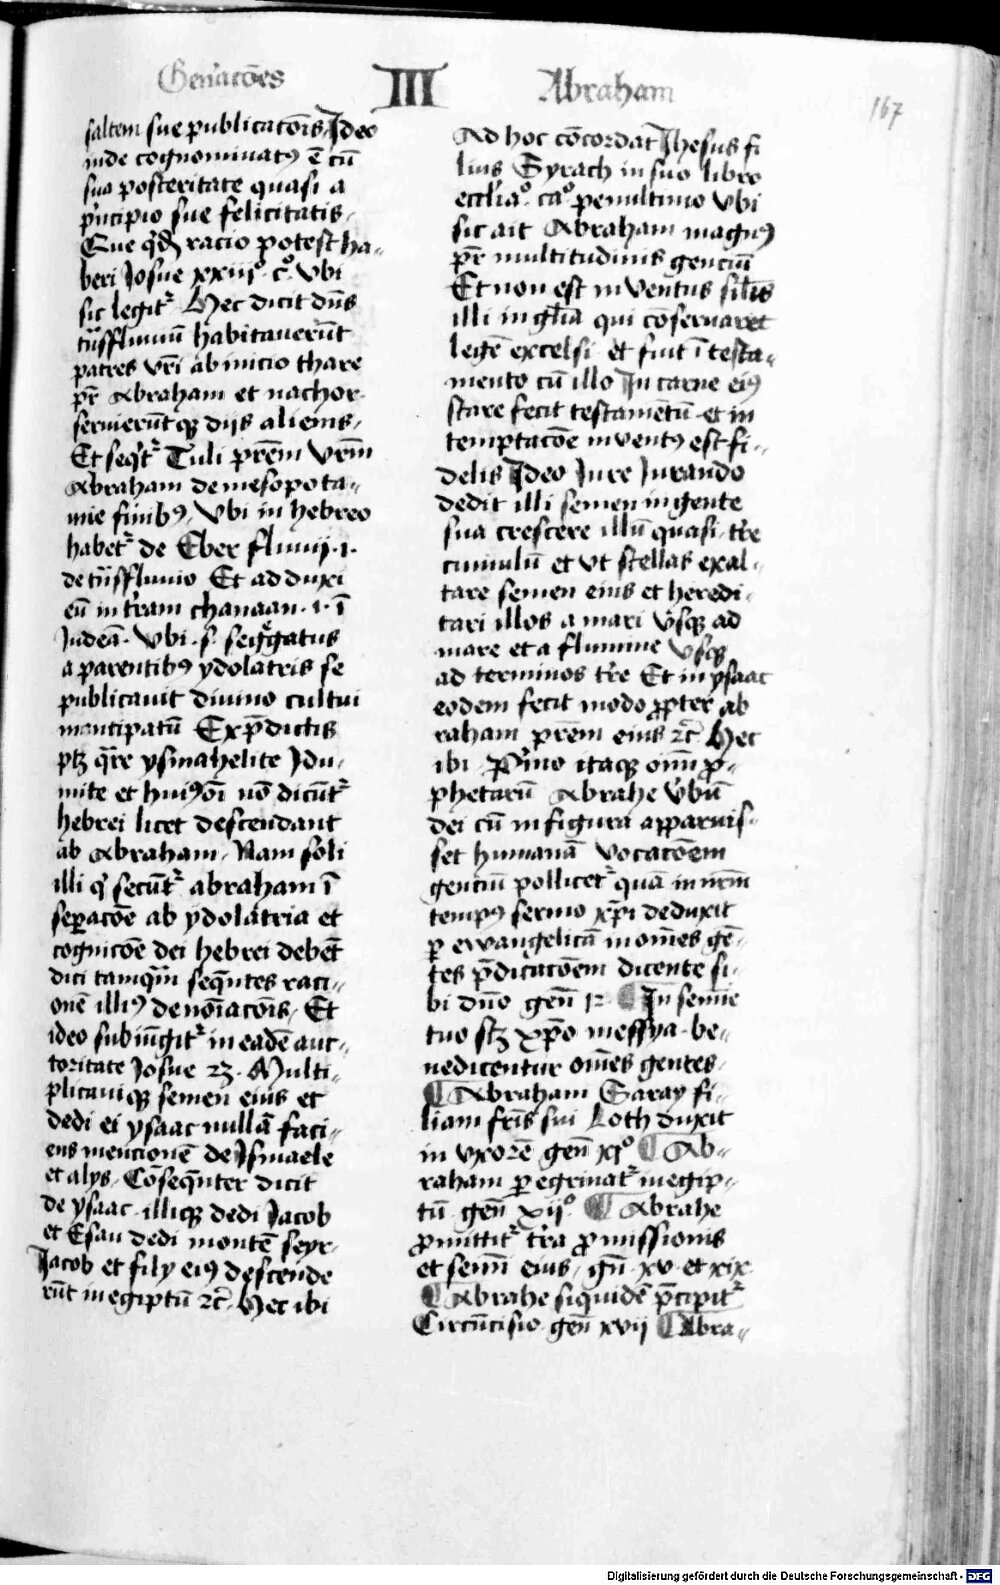 Gen̄acōes III Abraham
167
saltem sue publicatōis, Ideo
inde cognominatꝰ ē cū
sua posteritate quasi a
pⁱncipio sue felicitatis,
Que qⁱdē racio potest ha„
beri Josue xxiiiº cº. vbi
sic legitʳ Hec dicit dn̄s
tⁿsfluuiū habitauerūt
patres vr̄i ab inicio thare
pr̄ Abraham et nachor.
seruierūtqꝫ dijs alienis,
Et seqⁱtʳ Tuli pr̄em vr̄m
Abraham de mesopota„
mie finibꝰ, vbi in hebreo
habetʳ de Eber fluuij .i.
de tⁿsfluuio Et adduxi
eū in tr̄am chanaan .i. ī
Judeā. vbi .s. seg̅gatus
a parentibꝰ ydolatris se
publicauit diuino cultui
mancipatū Ex p̄dictis
ptꝫ qr̄e ysmahelite Idu„
mite et huiꝰōi nō dicūtʳ
hebrei licet descendant
ab Abraham, Nam soli
illi qⁱ secūtʳ abraham ī
seꝑacōe ab ydolatria et
cognicōe dei hebrei debēt
dici tamqᵃm seqn̄tes raci„
onē illiꝰ denoīacōis, Et
ideo subiūgitʳ in eadē auc„
toritate Josue 23. Multi„
plicauiqꝫ semen eius et
dedi ei ysaac nullā faci„
ens mencionē de Ismaele
et alys, Cōseqn̄ter dicit
de ysaac . illiqꝫ dedi Jacob
et Esau dedi montē seyr.
Jacob et fily eiꝰ descende
rūt in egiptū ⁊c̄. Hec ibi
Ad hoc cōcordat Jhesus fi
lius Syrach in suo libro
eccl̄iaº. caº. penultimo vbi
sic ait Abraham magnꝰ
pr̄ multitudinis genciū
Et non est inuentus sil̄is
illi in gl̄ia qui cōseruaret
legē excelsi et fuit ī testa„
mento cū illo In carne eiꝰ
stare fecit testamētū et in
temptacōe inuentꝰ est fi„
delis Ideo Jure Jurando
dedit illi semen in gente
sua crescere illū quasi tr̄e
cumulū et vt stellas exal„
tare semen eius et heredi„
tari illos a mari vsqꝫ ad
mare et a flumine vsqꝫ
ad terminos tr̄e Et in ysaac
eodem fecit modo ꝓpter ab
raham pr̄em eius ⁊c̄ Hec
ibi . Pⁱmo itaqꝫ oīm ꝓ„
phetarū Abrahe v̄bū
dei cū in figura apparuis„
set humana vocacōem
genciū pollicetʳ quā in nr̄m
tempꝰ sermo xp̄i deduxit
ꝑ ewangelicā in om̄es gē„
tes p̄dicacōem dicente si„
bi dn̄o gen̄ 12. ¶ In semīe
tuo stꝫ xp̄o messya . be„
nedicentur om̄es gentes.
¶ Abraham Saray fi„
liam fr̄is sui Loth duxit
in vxorē gen̄ xjº ¶ Ab„
raham ꝑegrinatʳ in egip„
tū . gen̄ xijº. ¶ Abrahe
ꝓmittitʳ tr̄a ꝓmissionis
et semī eius, gn̄ .xv. et xix.
¶ Abrahe siquidē p̄cipitʳ
Circūcisio . gen̄ xvij ¶ Abra„
Digitalisierung gefördert durch die Deutsche Forschungsgemeinschaft - DFG